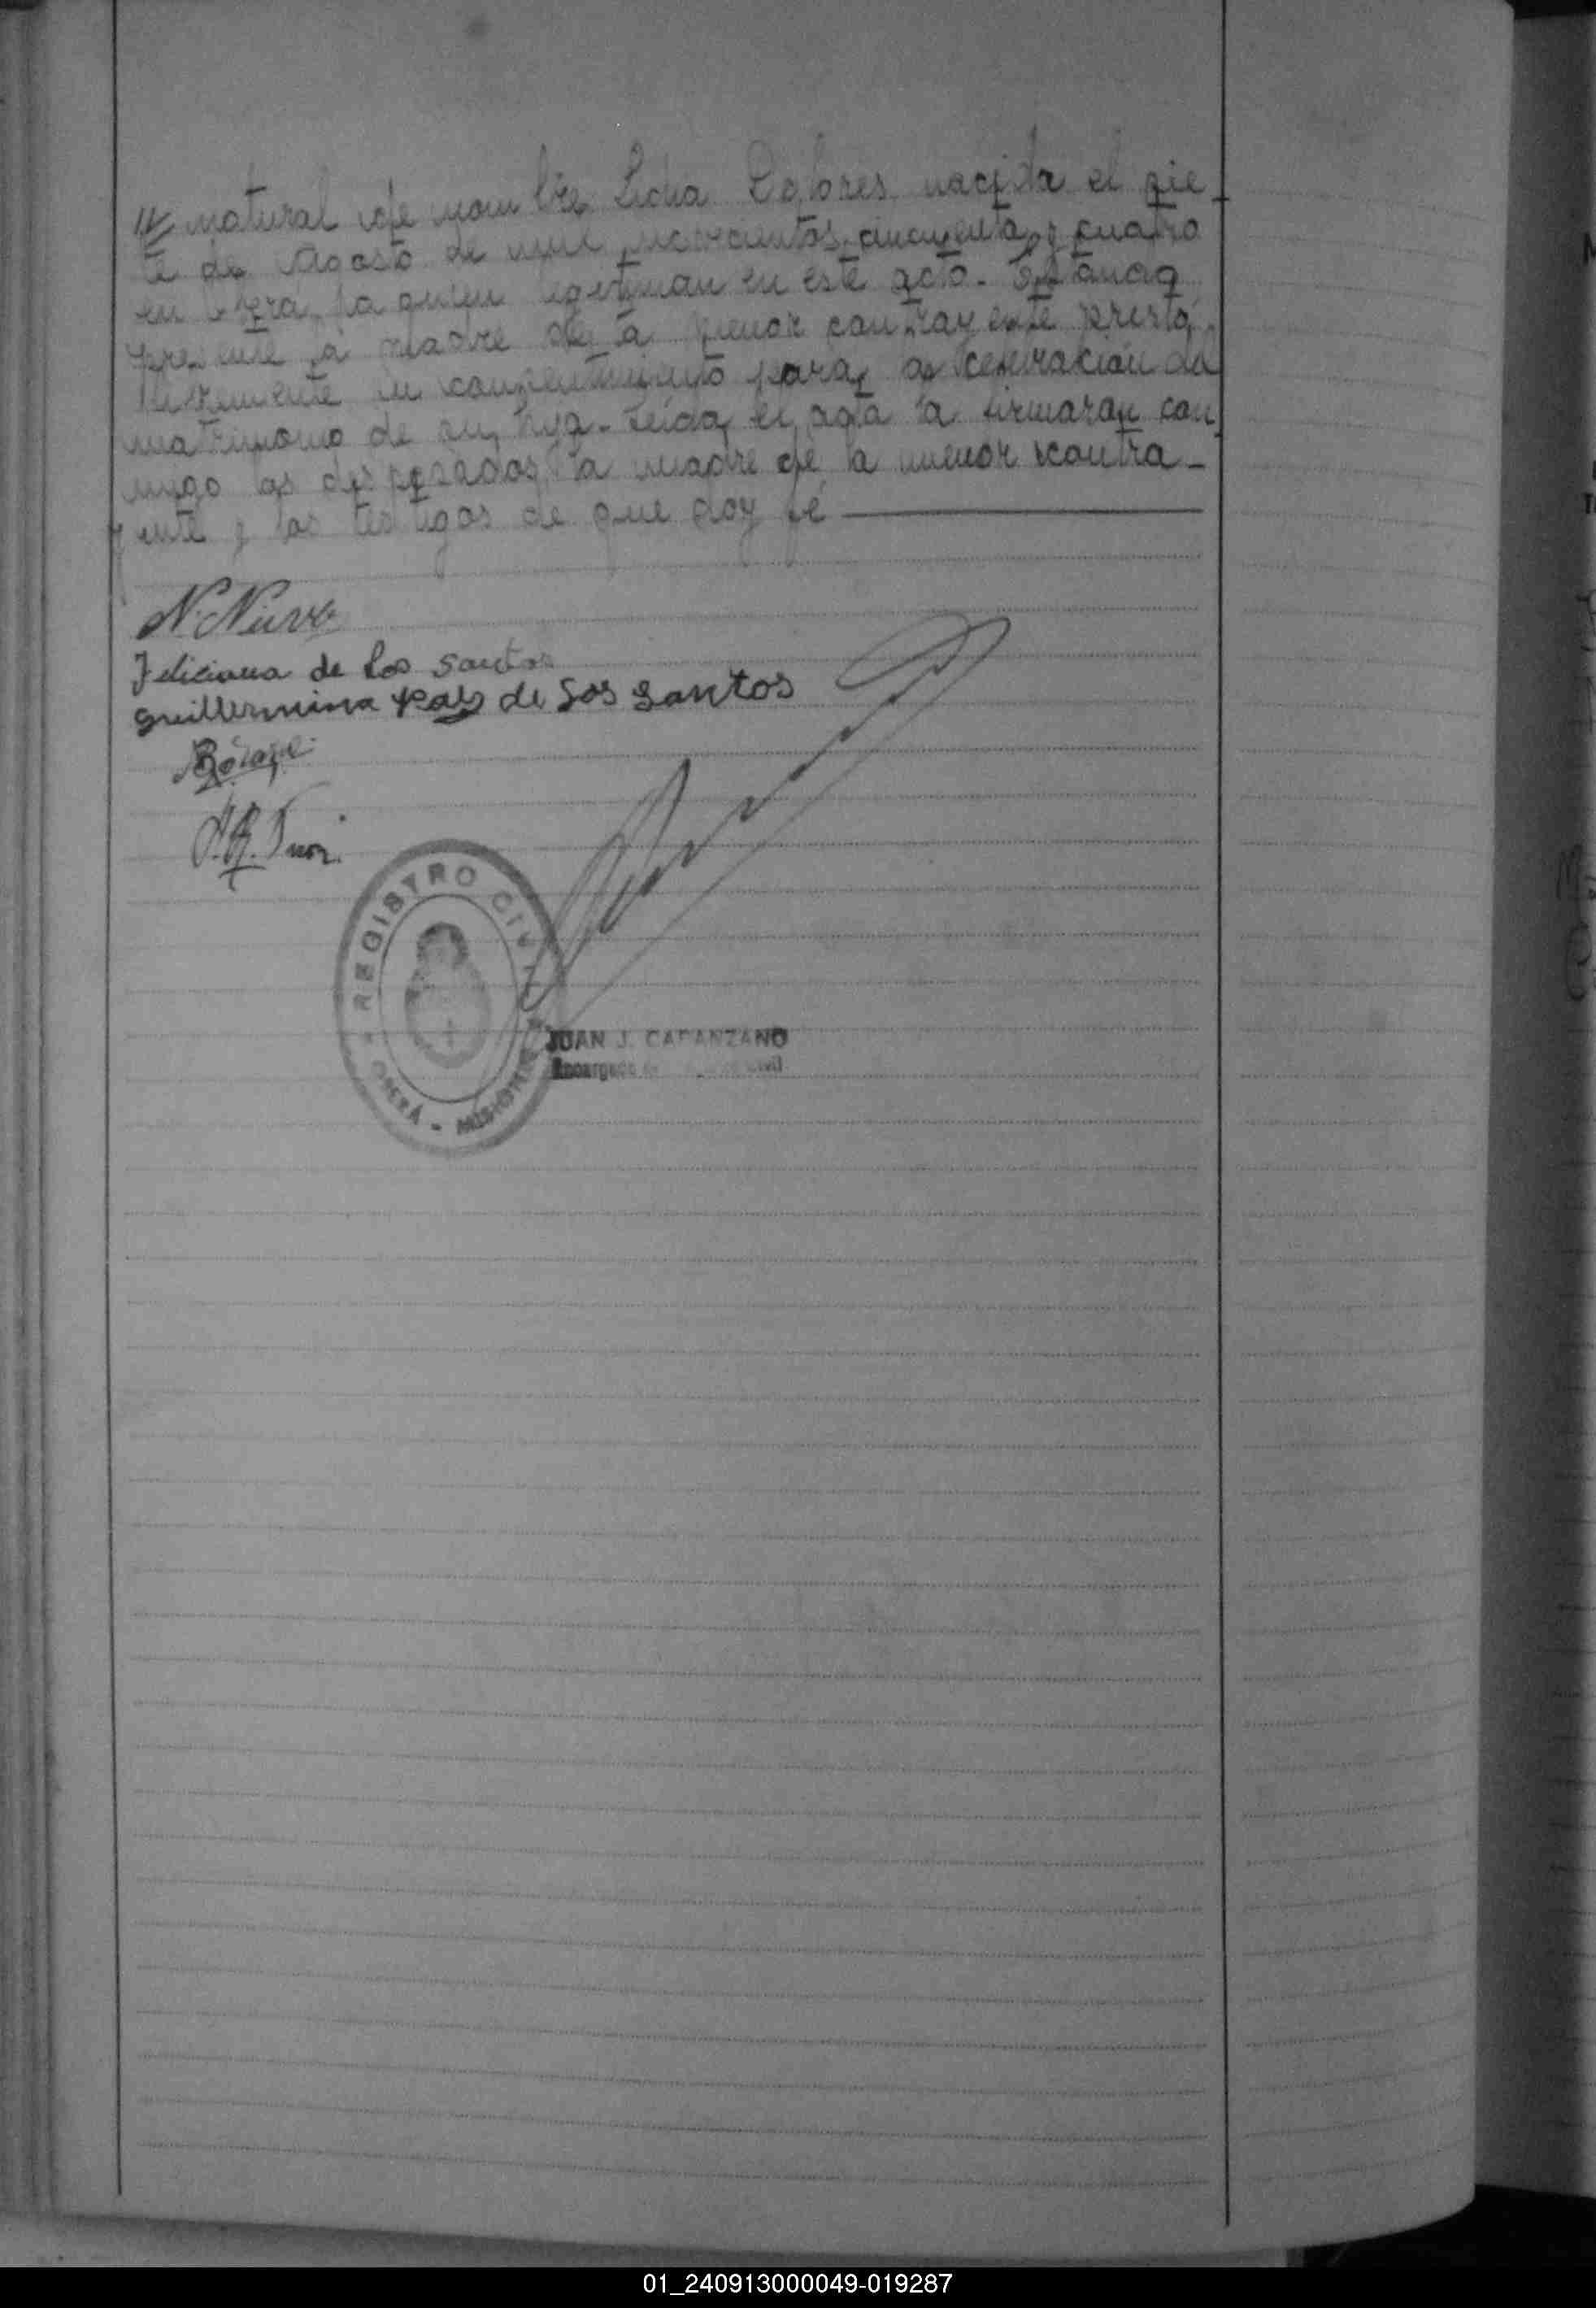 natural de nombre Lidia Dolores nacida el sie-
te de Agosto de mil novecientos cincuenta y cuatro
en Oberá, a quien legitiman en este acto. Estando
presente la madre de la menor contrayente presta
libremente su consentimiento para la celebración del
matrimonio de su hija. Leída el acta la firmaran con-
migo los desposados, la madre de la menor contra-
yente y los testigos de que doy fé
Feliciana de los Santos
Guillermina de los Santos
REGISTRO CIVIL
OBERÁ - MISIONES
JUAN J. CAPANZANO
Encargado Civil
01_240913000049-019287